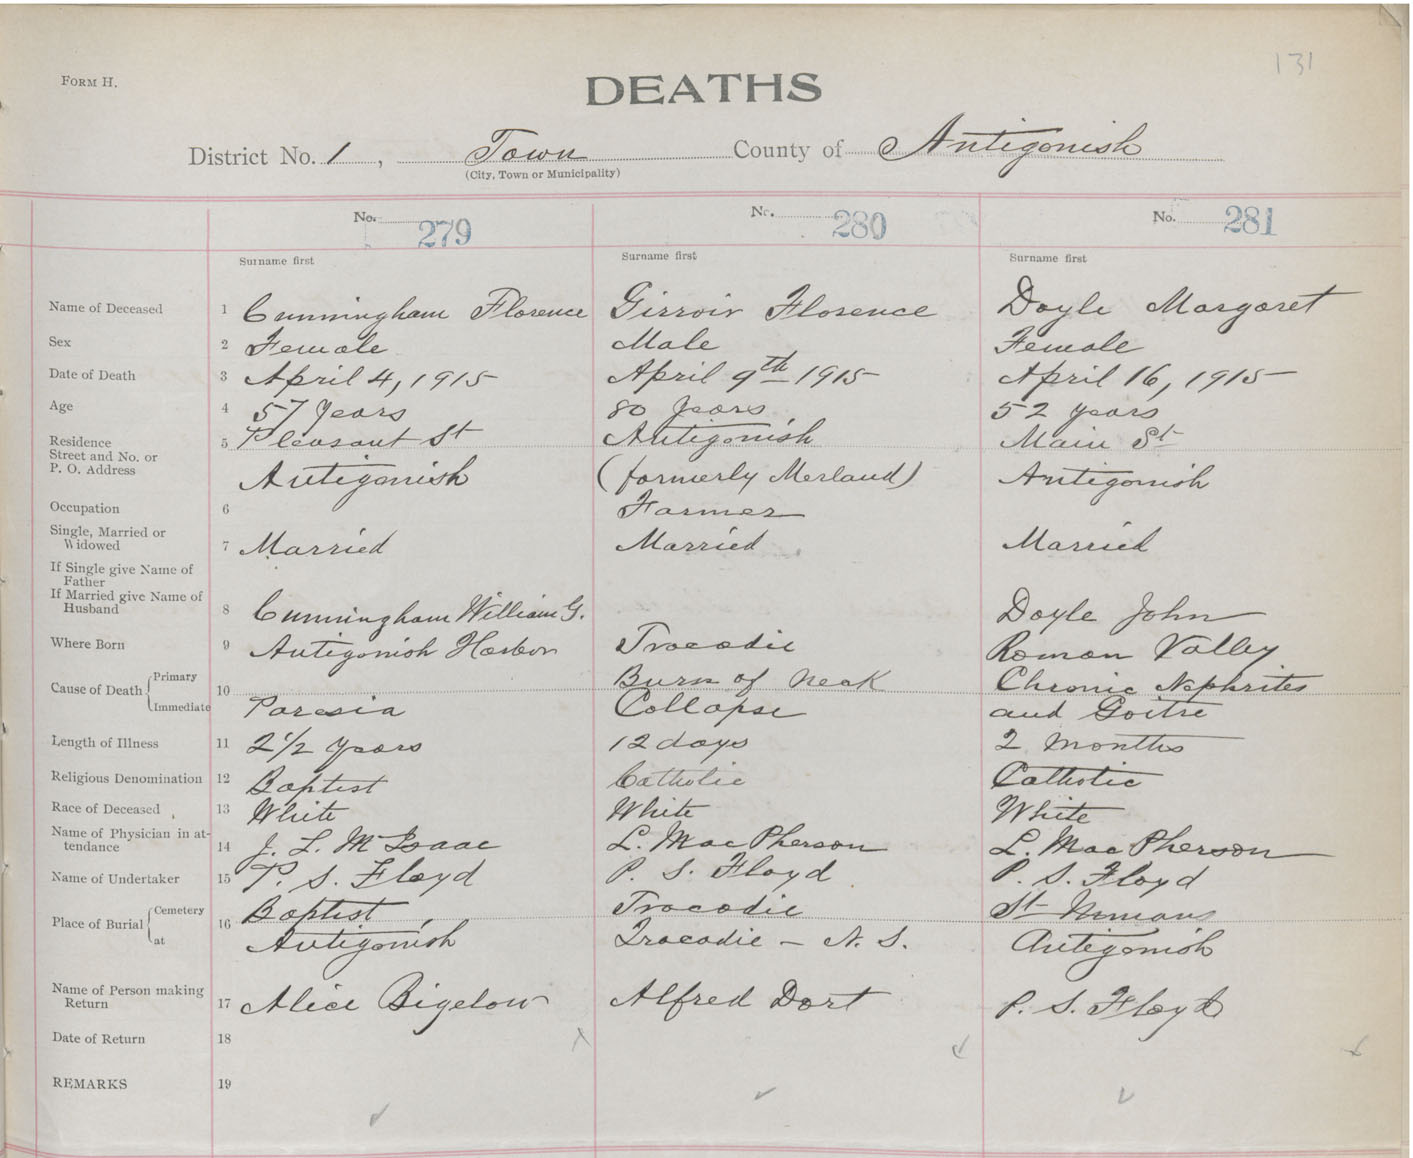 131
FORM H.
DEATHS
District No. 1, Town County of Antigonish
(City, Town or Municipality)
No. 279 No. 280 No. 281
Surname first Surname first Surname first
Name of Deceased 1 Cunningham Florence Girroir Florence Doyle Margaret
Sex 2 Female Male Female
Date of Death 3 April 4, 1915 April 9th 1915 April 16, 1915
Age 4 57 Years 80 Years 52 years
Residence 5 Pleasant St Antigonish Main St
Street and No. or
P. O. Address Antigonish (formerly Merland) Antigonish
Occupation 6 Farmer
Single, Married or
Widowed 7 Married Married Married
If Single give Name of
Father
If Married give Name of
Husband 8 Cunningham William G. Doyle John
Where Born 9 Antigonish Harbor Tracadie Roman Valley
Cause of Death Primary 10 Burn of Neck Chronic Nephrites
Immediate Paresia Collapse and Goitre
Length of Illness 11 2 1/2 years 12 days 2 months
Religious Denomination 12 Baptist Catholic Catholic
Race of Deceased 13 White White White
Name of Physician in at-
tendance 14 J. L. McIsaac L. MacPherson L. MacPherson
Name of Undertaker 15 P. S. Floyd P. S. Floyd P. S. Floyd
Place of Burial Cemetery 16 Baptist Tracadie St Ninians
at Antigonish Tracadie - N. S. Antigonish
Name of Person making
Return 17 Alice Bigelow Alfred Dort P. S. Floyd
Date of Return 18
REMARKS 19